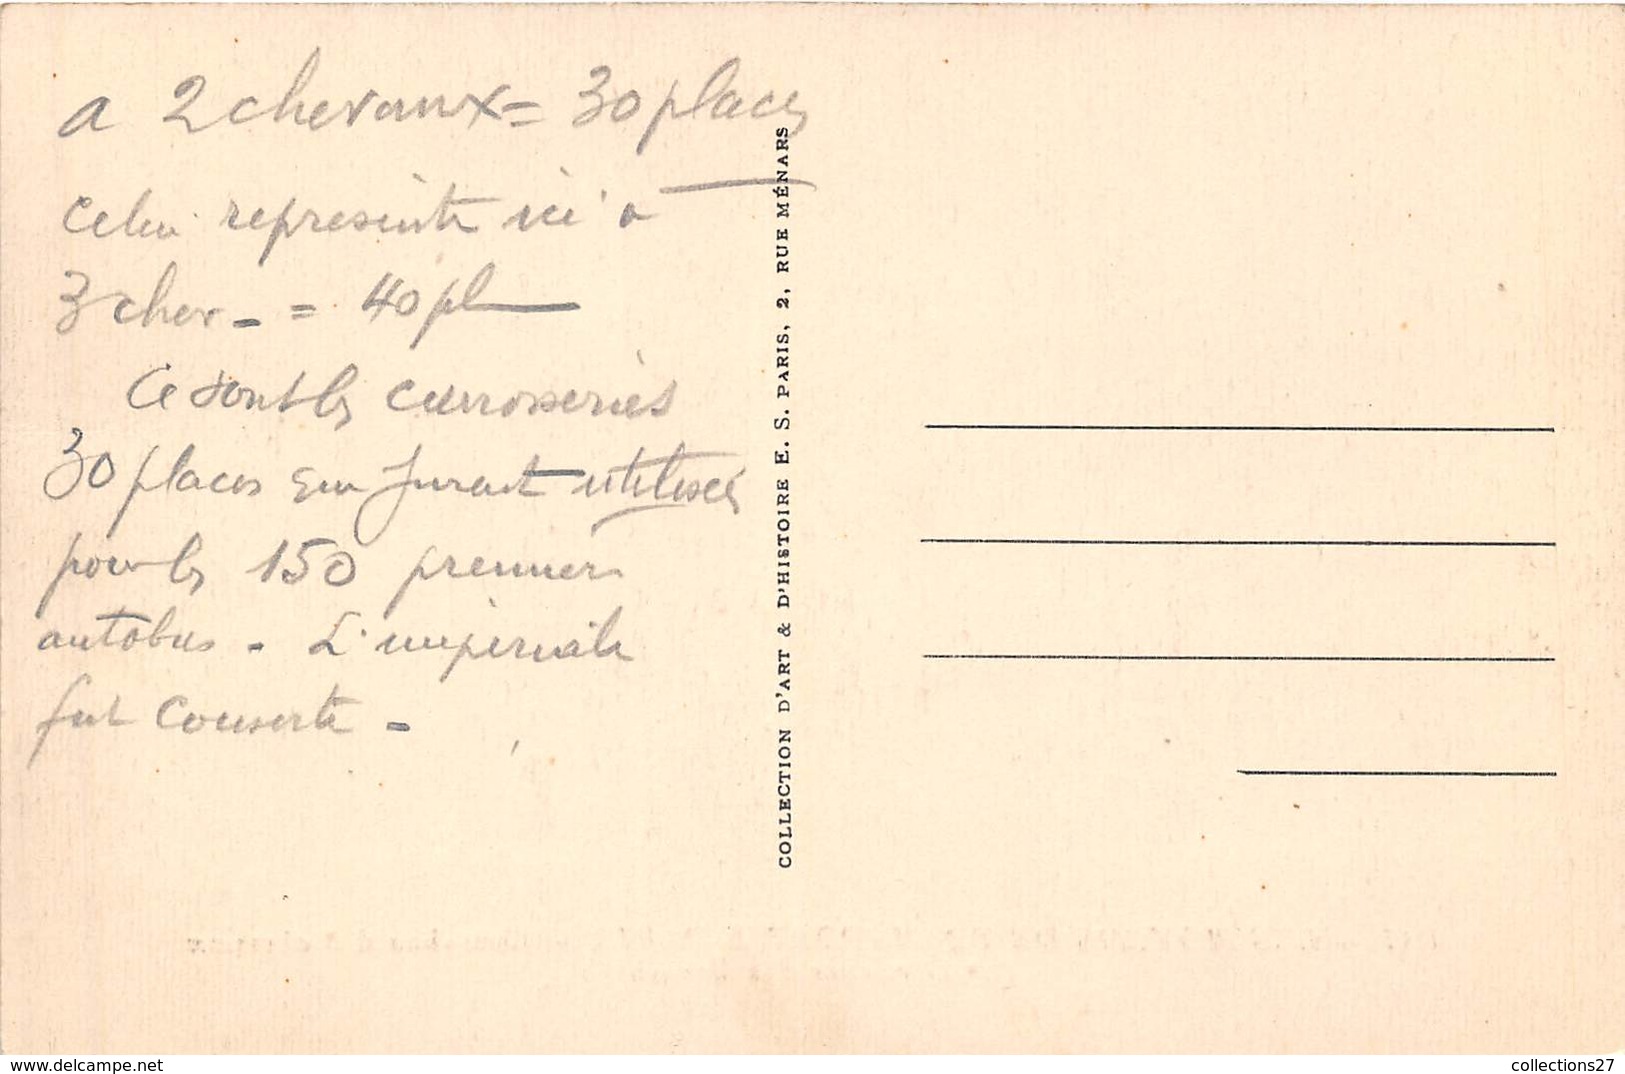 a 2 chevaux = 30 places
celui représenté ici à
3 chev - = 40 pl
Ce sont les carrosseries
30 places qui furent utilisées
pour les 150 premiers
autobus - L'impériale
fut couverte -
COLLECTION D'ART & D'HISTOIRE E. S. PARIS, 2, RUE MÉNARS
collections27